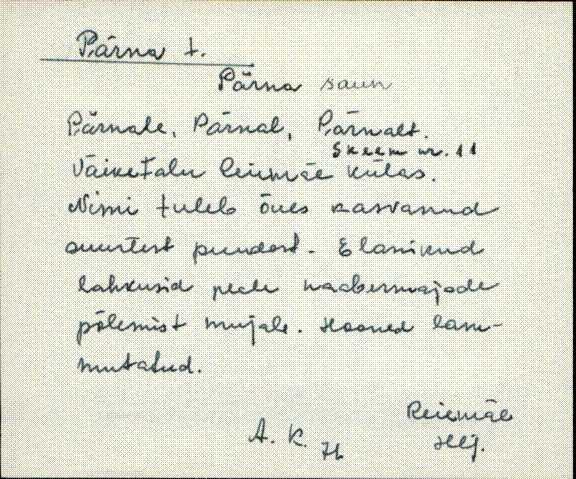 Pärna t.
Pärna saun
Pärnale, Pärnal, Pärnalt.
Skeem nr. 11
Väiketalu Reiemäe külas.
Nimi tuleb õues kasvanud
suurtest puudest. Elanikud
lahkusid peale naabermajade
põlemist mujale. Hooned lam-
mutatud.
Reiemäe
A. K.
Hlj.